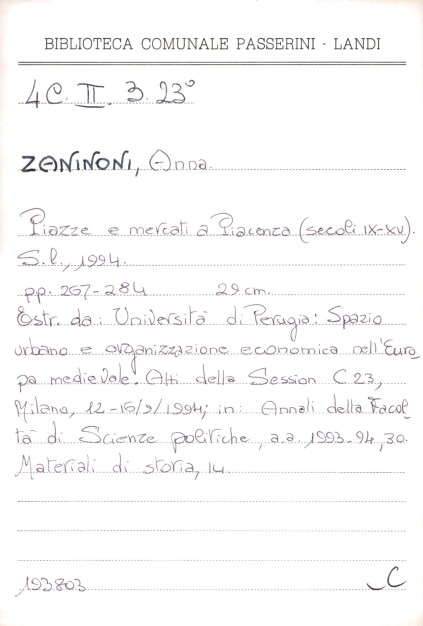 BIBLIOTECA COMUNALE PASSERINI - LANDI
4C. II. 3. 23°
ZANINONI, Anna.
Piazze e mercati a Piacenza (secoli IX-XV).
S.l., 1994.
pp. 267-284 29 cm.
Estr. da: Università di Perugia: Spazio
urbano e organizzazione economica nell'Euro_
pa medievale. Atti della Session C 23,
Milano, 12-16/9/1994; in: Annali della Facol_
tà di Scienze politiche, a.a. 1993-94, 30.
Materiali di storia, 14.
193803 C